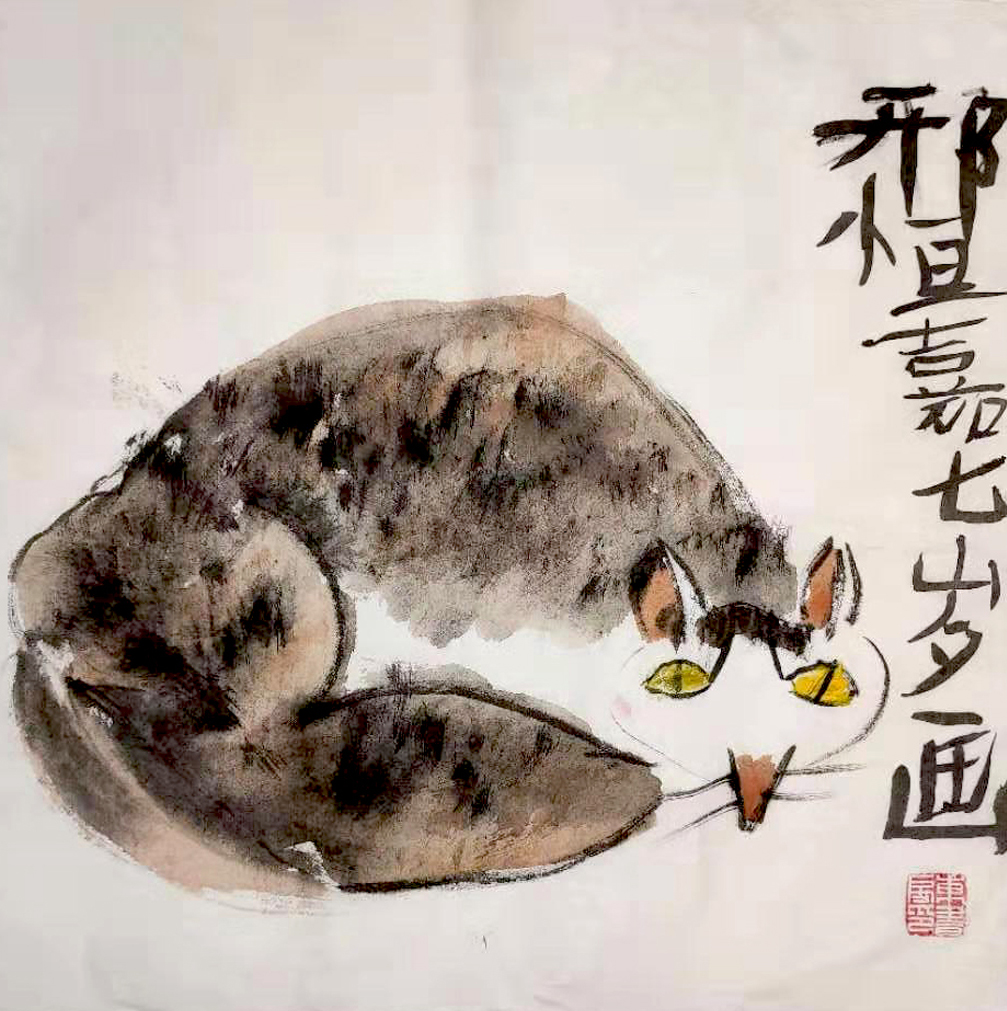 邢恒嘉七岁画